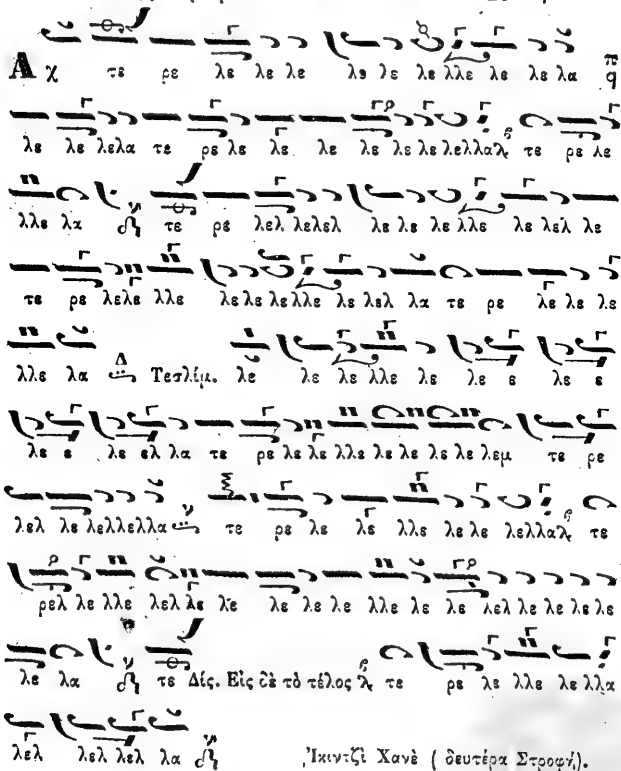 Α χ τε ρε λε λε λε λε λε λε λλε λε λε λα π q
λε λε λελα τε ρε λε λε λε λε λε λε λελλα τε ρε λε
λλε λα τε ρε λελ λελελ λε λε λε λλε λε λελ λε
τε ρε λελε λλε λε λε λε λλε λε λελ λα τε ρε λε λε λε
λλε λα Δ Τεσλίμ. λε λε λε λλε λε λε ε λε ε
λε ε λε ελ λα τε ρε λε λε λλε λε λε λε λε λεμ τε ρε
λελ λε λελλελλα τε ρε λε λε λλε λε λε λελλα τε
ρελ λε λλε λελ λε λε λε λε λε λλε λε λε λελ λε λε λε λε
λε λα τε Δίς. Εἰς δὲ τὸ τέλος τε ρε λε λλε λε λλα
λελ λελ λελ λα Ἰκιντζὶ Χανὲ ( δευτέρα Στροφή).